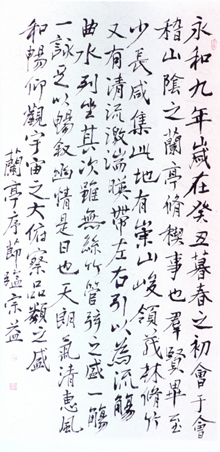 永和九年歲在癸丑暮春之初會于會
稽山陰之蘭亭脩禊事也羣賢畢至
少長咸集此地有崇山峻領茂林脩竹
又有清流激湍暎帶左右引以為流觴
曲水列坐其次雖無絲竹管弦之盛一觴
一詠足以暢叙幽情是日也天朗氣清惠風
和暢仰觀宇宙之大俯察品類之盛
蘭亭序節宗益